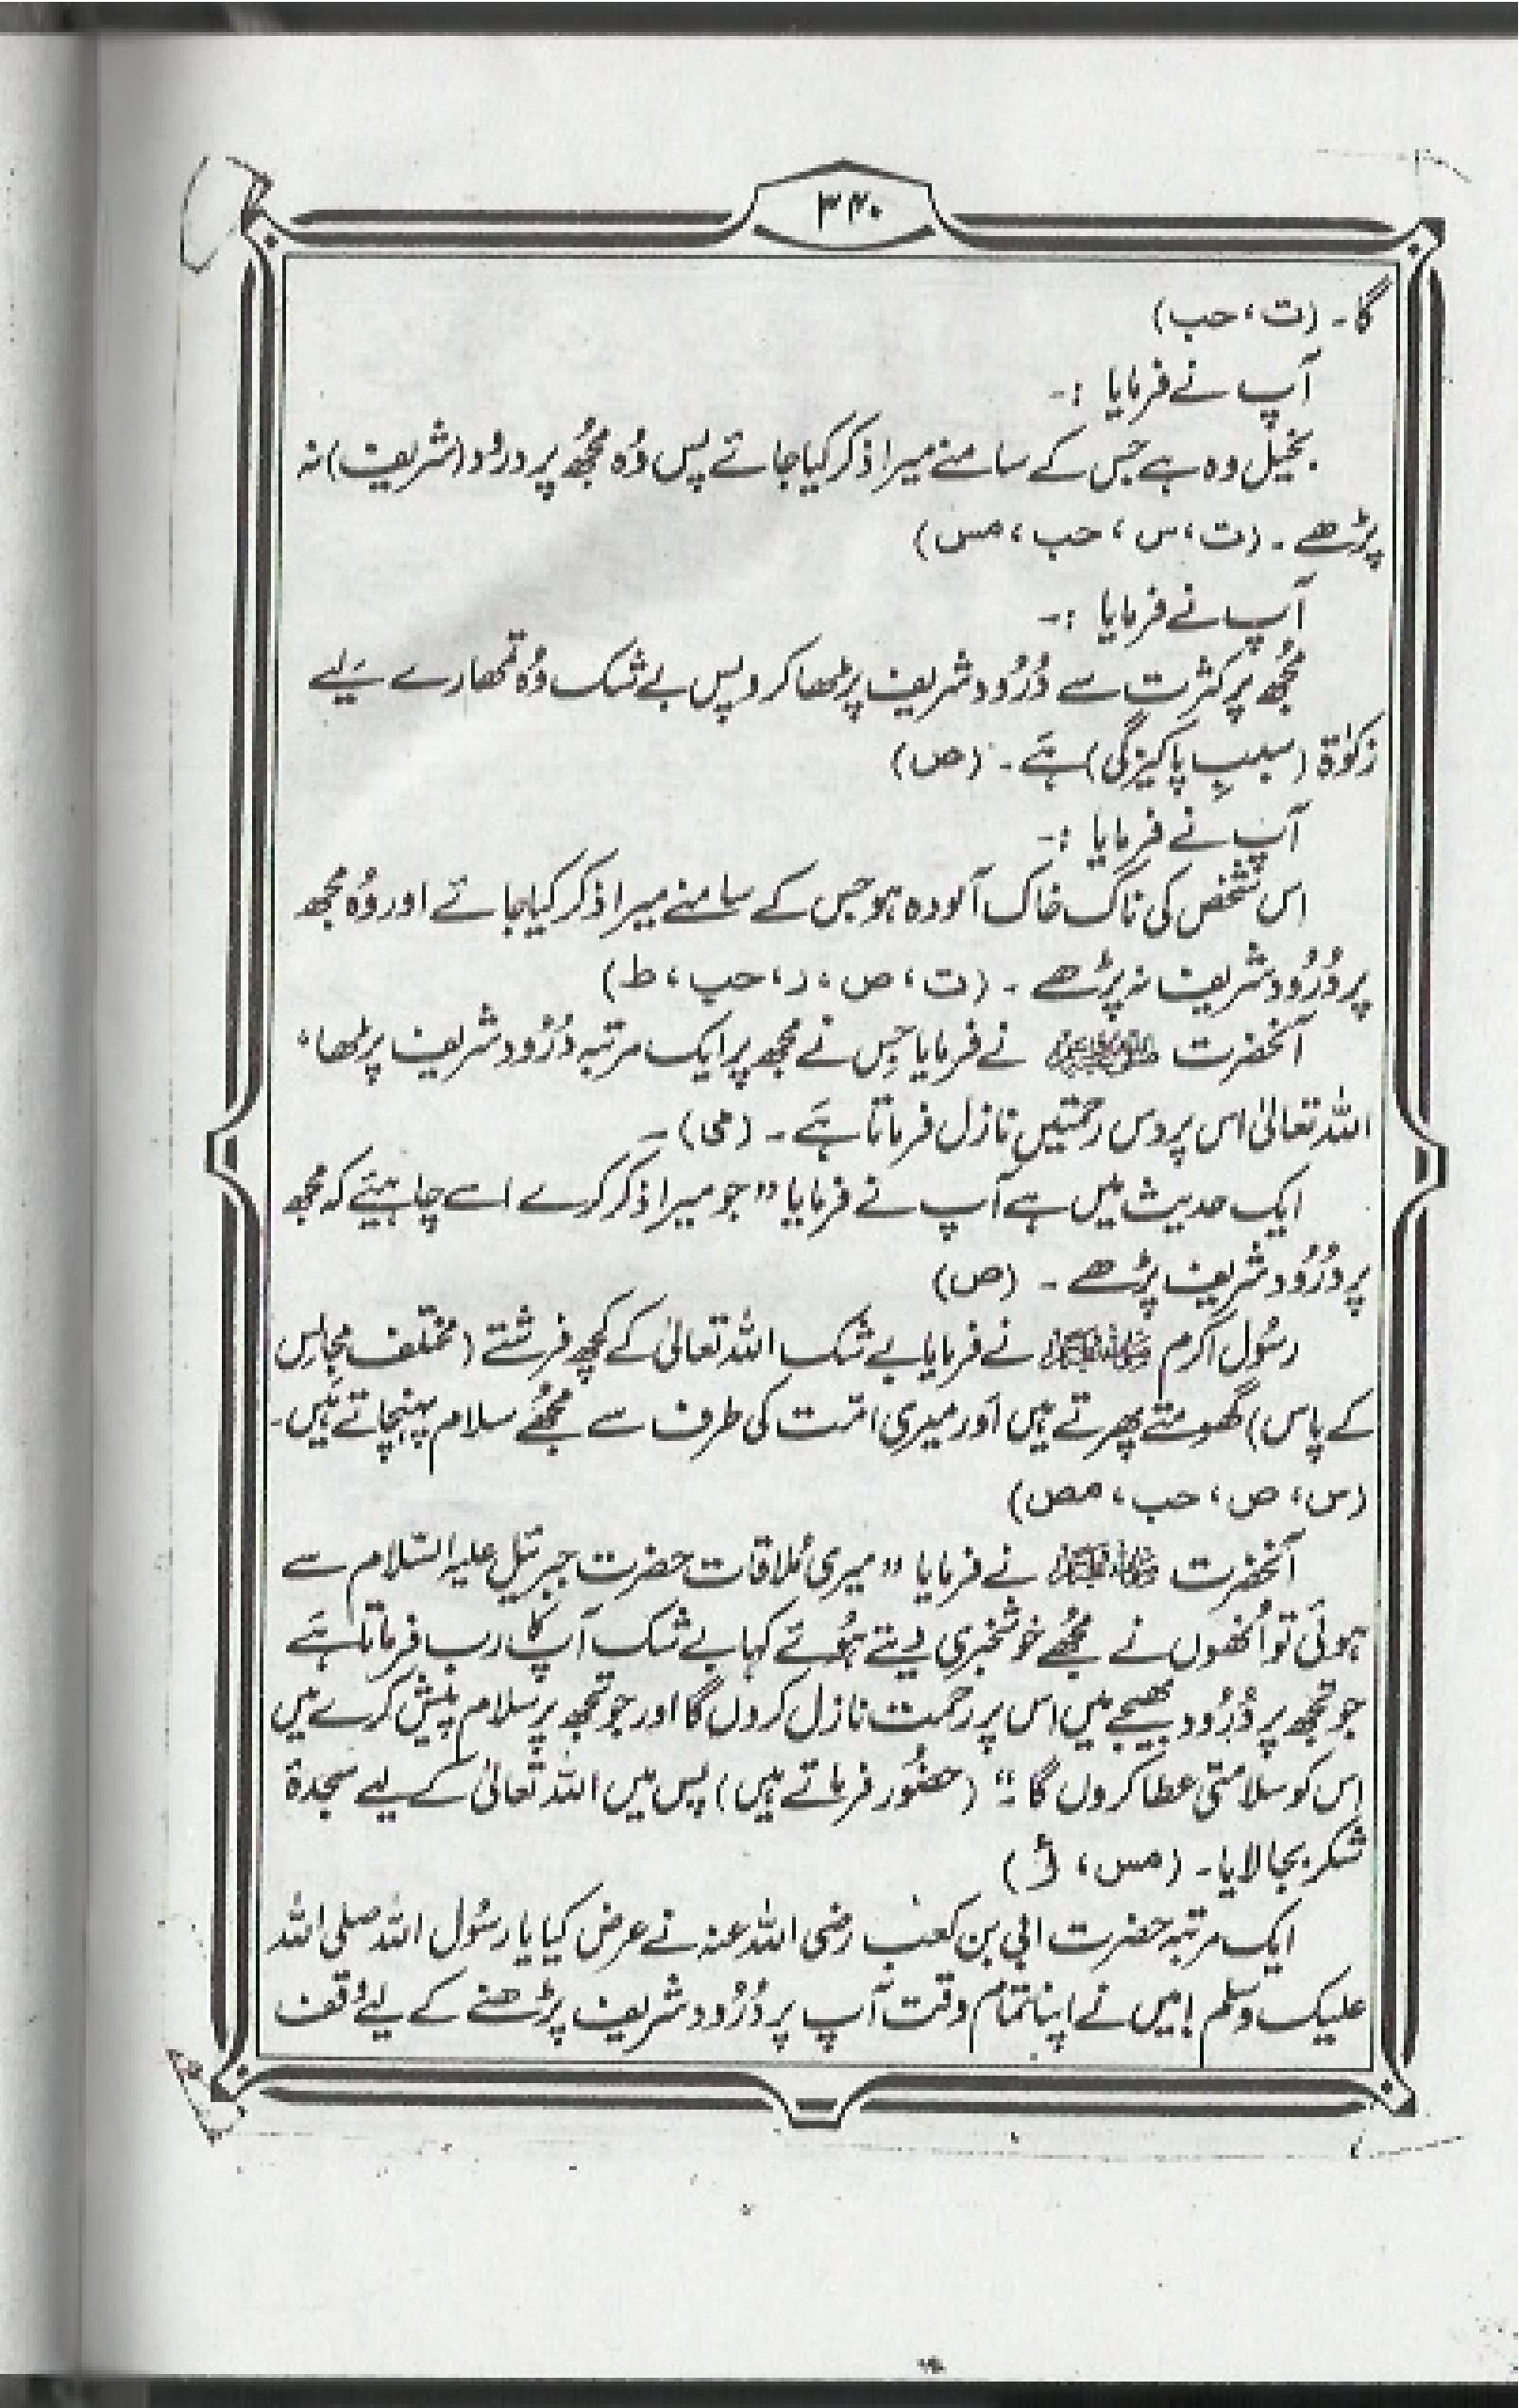 ۳۴۰
گا۔ (ت، حب)
آپ نے فرمایا :-
بخیل وہ ہے جس کے سامنے میرا ذکر کیا جائے پس وُہ مجھُ پر درُود (شریف) نہ
پڑھے۔ (ت، س، حب، مس)
آپ نے فرمایا :-
مجھُ پر کثرت سے دُرُود شریف پڑھا کرو پس بے شک وُہ تمھارے لیے
زکوٰۃ (سببِ پاکیزگی) ہے۔ (ص)
آپ نے فرمایا :-
اس شخص کی ناک خاک آلودہ ہو جس کے سامنے میرا ذکر کیا جائے اور وُہ مجھُ
پر دُرُود شریف نہ پڑھے۔ (ت، ص، ر، حب، ط)
آنحضرت ﷺ نے فرمایا جِس نے مجھ پر ایک مرتبہ دُرُود شریف پڑھا،
اللہ تعالیٰ اس پر دس رحمتیں نازل فرماتا ہے۔ (می)۔
ایک حدیث میں ہے آپ نے فرمایا ”جو میرا ذکر کرے اسے چاہیئے کہ مجھُ
پر دُرُود شریف پڑھے۔ (ص)
رسُول اکرم ﷺ نے فرمایا بے شک اللہ تعالیٰ کے کچھُ فرشتے (مختلف مجالس
کے پاس) گھومتے پھرتے ہیں اور میری امّت کی طرف سے مجھُے سلام پہنچاتے ہیں۔
(س، ص، حب، مص)
آنحضرت ﷺ نے فرمایا ”میری مُلاقات حضرت جبرئیل علیہ السّلام سے
ہوئی تو اُنھوں نے مجھُے خوشخبری دیتے ہوُئے کہا بے شک آپ کا رب فرماتا ہے
جو تجھُ پر دُرُود بھیجے میں اس پر رحمت نازل کروں گا اور جو تجھُ پر سلام پیش کرے میں
اس کو سلامتی عطا کروں گا۔“ (حضُور فرماتے ہیں) پس میں اللہ تعالیٰ کے لیے سجدۂ
شکر بجا لایا۔ (مس، أ)
ایک مرتبہ حضرت ابی بن کعب رضی اللہ عنہ نے عرض کیا یا رسُول اللہ صلی اللہ
علیک وسلم! میں نے اپنا تمام وقت آپ پر دُرُود شریف پڑھنے کے لیے وقف